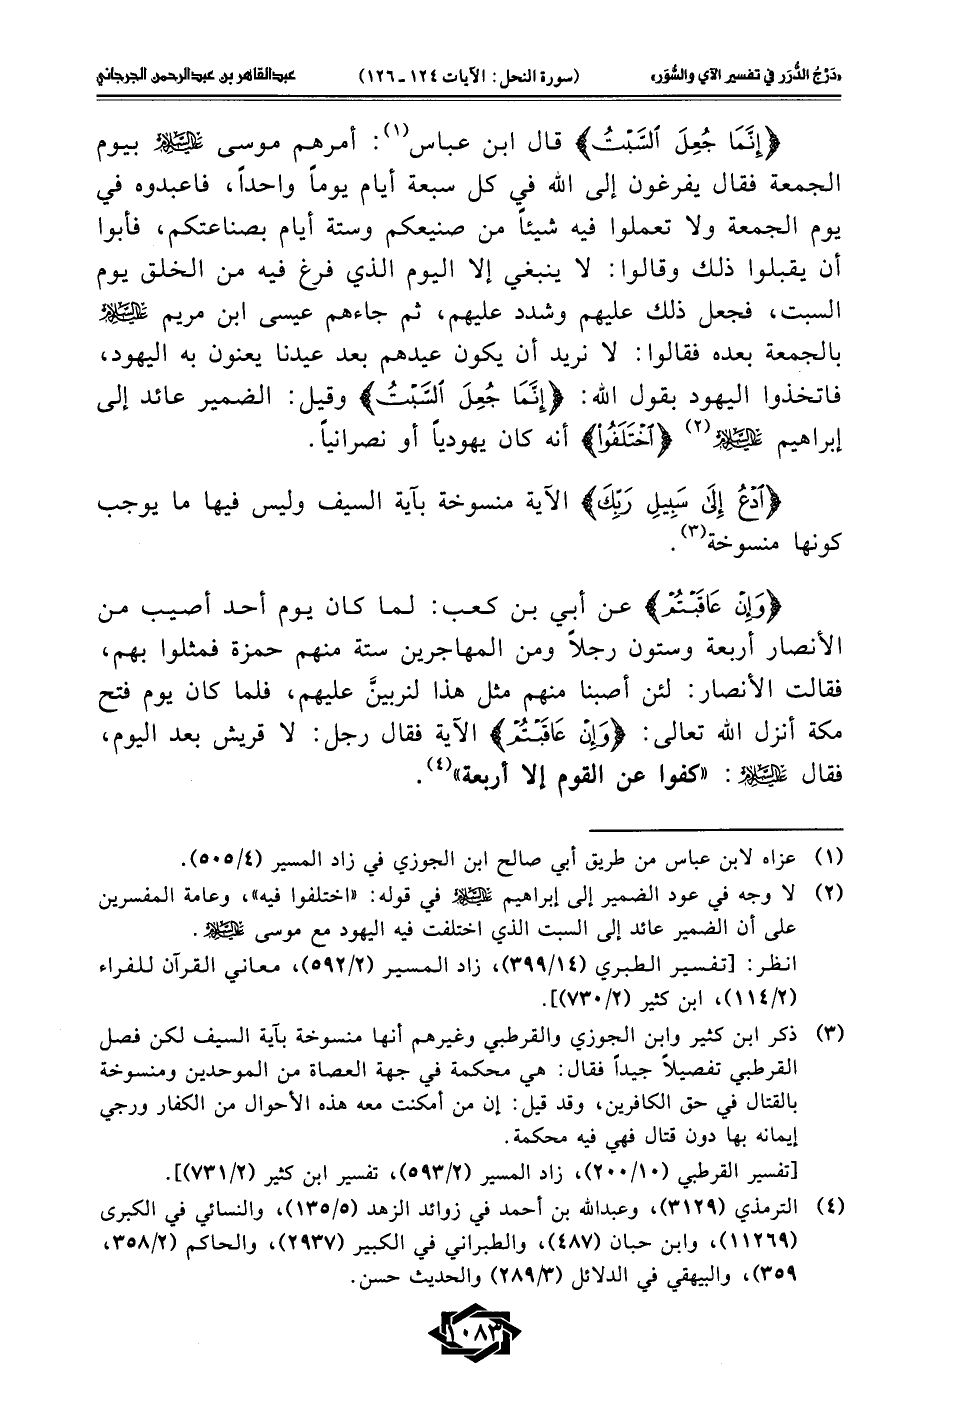 «دَرْجُ الدُّرَر في تفسير الآي والسُّوَر» (سورة النحل: الآيات ١٢٤ ـ ١٢٦) عبدالقاهر بن عبدالرحمن الجرجاني
﴿إِنَّمَا جُعِلَ ٱلسَّبْتُ﴾ قال ابن عباس(١): أمرهم موسى عَلَيْهِ السَّلَام بيوم
الجمعة فقال يفرغون إلى الله في كل سبعة أيام يوماً واحداً، فاعبدوه في
يوم الجمعة ولا تعملوا فيه شيئاً من صنيعكم وستة أيام بصناعتكم، فأبوا
أن يقبلوا ذلك وقالوا: لا ينبغي إلا اليوم الذي فرغ فيه من الخلق يوم
السبت، فجعل ذلك عليهم وشدد عليهم، ثم جاءهم عيسى ابن مريم عَلَيْهِ السَّلَام
بالجمعة بعده فقالوا: لا نريد أن يكون عيدهم بعد عيدنا يعنون به اليهود،
فاتخذوا اليهود بقول الله: ﴿إِنَّمَا جُعِلَ ٱلسَّبْتُ﴾ وقيل: الضمير عائد إلى
إبراهيم عَلَيْهِ السَّلَام(٢) ﴿ٱخْتَلَفُواْ﴾ أنه كان يهودياً أو نصرانياً.
﴿ٱدْعُ إِلَىٰ سَبِيلِ رَبِّكَ﴾ الآية منسوخة بآية السيف وليس فيها ما يوجب
كونها منسوخة(٣).
﴿وَإِنْ عَاقَبْتُمْ﴾ عن أبي بن كعب: لما كان يوم أحد أصيب من
الأنصار أربعة وستون رجلاً ومن المهاجرين ستة منهم حمزة فمثلوا بهم،
فقالت الأنصار: لئن أصبنا منهم مثل هذا لنربينَّ عليهم، فلما كان يوم فتح
مكة أنزل الله تعالى: ﴿وَإِنْ عَاقَبْتُمْ﴾ الآية فقال رجل: لا قريش بعد اليوم،
فقال عَلَيْهِ السَّلَام: «كفوا عن القوم إلا أربعة»(٤).
(١) عزاه لابن عباس من طريق أبي صالح ابن الجوزي في زاد المسير (٥٠٥/٤).
(٢) لا وجه في عود الضمير إلى إبراهيم عَلَيْهِ السَّلَام في قوله: «اختلفوا فيه»، وعامة المفسرين
على أن الضمير عائد إلى السبت الذي اختلفت فيه اليهود مع موسى عَلَيْهِ السَّلَام.
انظر: [تفسير الطبري (٣٩٩/١٤)، زاد المسير (٥٩٢/٢)، معاني القرآن للفراء
(١١٤/٢)، ابن كثير (٧٣٠/٢)].
(٣) ذكر ابن كثير وابن الجوزي والقرطبي وغيرهم أنها منسوخة بآية السيف لكن فصل
القرطبي تفصيلاً جيداً فقال: هي محكمة في جهة العصاة من الموحدين ومنسوخة
بالقتال في حق الكافرين، وقد قيل: إن من أمكنت معه هذه الأحوال من الكفار ورجي
إيمانه بها دون قتال فهي فيه محكمة.
[تفسير القرطبي (٢٠٠/١٠)، زاد المسير (٥٩٣/٢)، تفسير ابن كثير (٧٣١/٢)].
(٤) الترمذي (٣١٢٩)، وعبدالله بن أحمد في زوائد الزهد (١٣٥/٥)، والنسائي في الكبرى
(١١٢٦٩)، وابن حبان (٤٨٧)، والطبراني في الكبير (٢٩٣٧)، والحاكم (٣٥٨/٢،
٣٥٩)، والبيهقي في الدلائل (٢٨٩/٣) والحديث حسن.
١٠٨٣